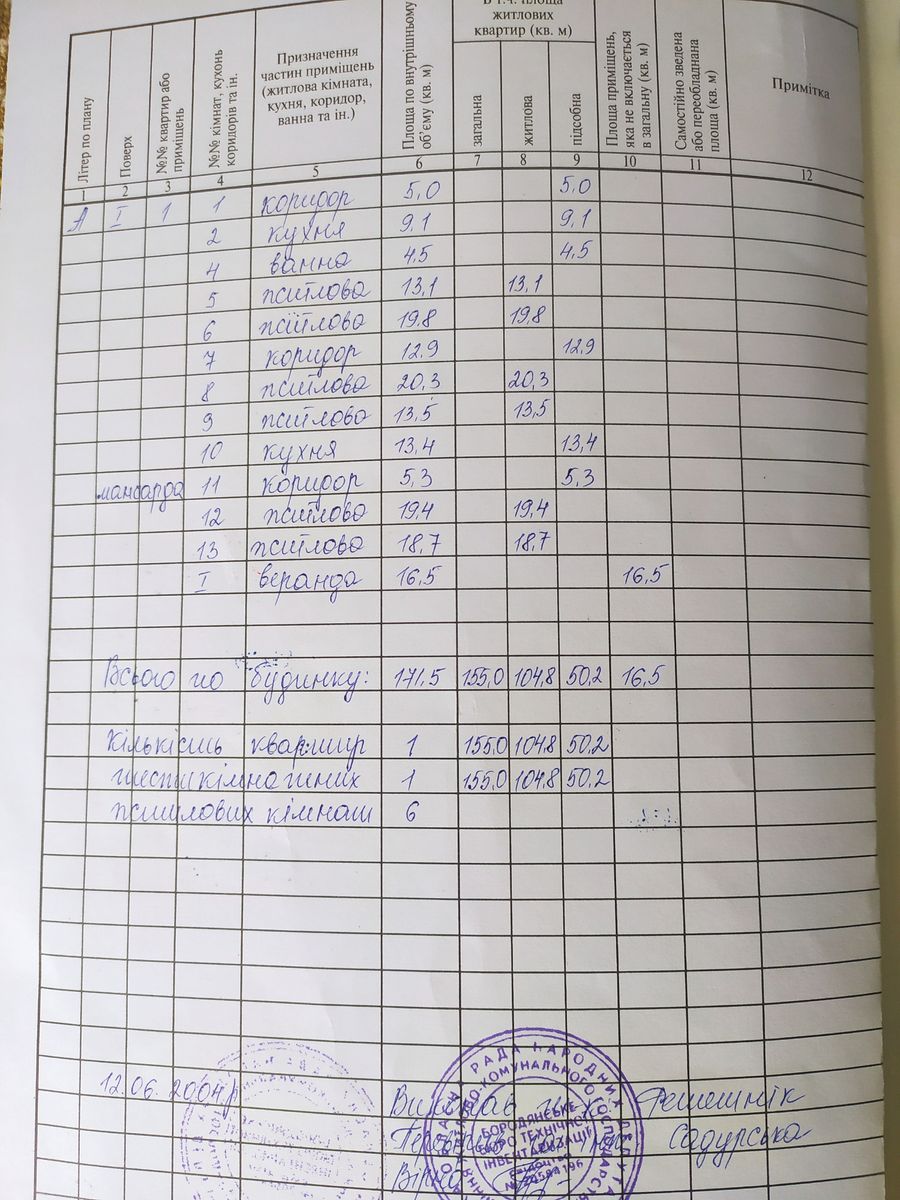 В т.ч. площа житлових квартир (кв. м)
Літер по плану
Поверх
№№ квартир або приміщень
№№ кімнат, кухонь коридорів та ін.
Призначення частин приміщень (житлова кімната, кухня, коридор, ванна та ін.)
Площа по внутрішньому об’єму (кв. м)
загальна
житлова
підсобна
Площа приміщень, яка не включається в загальну (кв. м)
Самостійно зведена або переобладнана площа (кв. м)
Примітка
1 2 3 4 5 6 7 8 9 10 11 12
А I 1 1 коридор 5,0 5,0
2 кухня 9,1 9,1
4 ванна 4,5 4,5
5 житлова 13,1 13,1
6 житлова 19,8 19,8
7 коридор 12,9 12,9
8 житлова 20,3 20,3
9 житлова 13,5 13,5
10 кухня 13,4 13,4
мансарда 11 коридор 5,3 5,3
12 житлова 19,4 19,4
13 житлова 18,7 18,7
I веранда 16,5 16,5
Всього по будинку: 171,5 155,0 104,8 50,2 16,5
Кількість квартир 1 155,0 104,8 50,2
шестикімнатних 1 155,0 104,8 50,2
житлових кімнат 6
12.06.2004р
Виконав Решетнік
Садурська
РАДА НАРОДНИХ ДЕПУТАТ
КОМУНАЛЬНОГО ГОСПОДАРСТ
БОРОДЯНСЬКЕ
БЮРО ТЕХНІЧНОЇ
ІНВЕНТАРИЗАЦІЇ